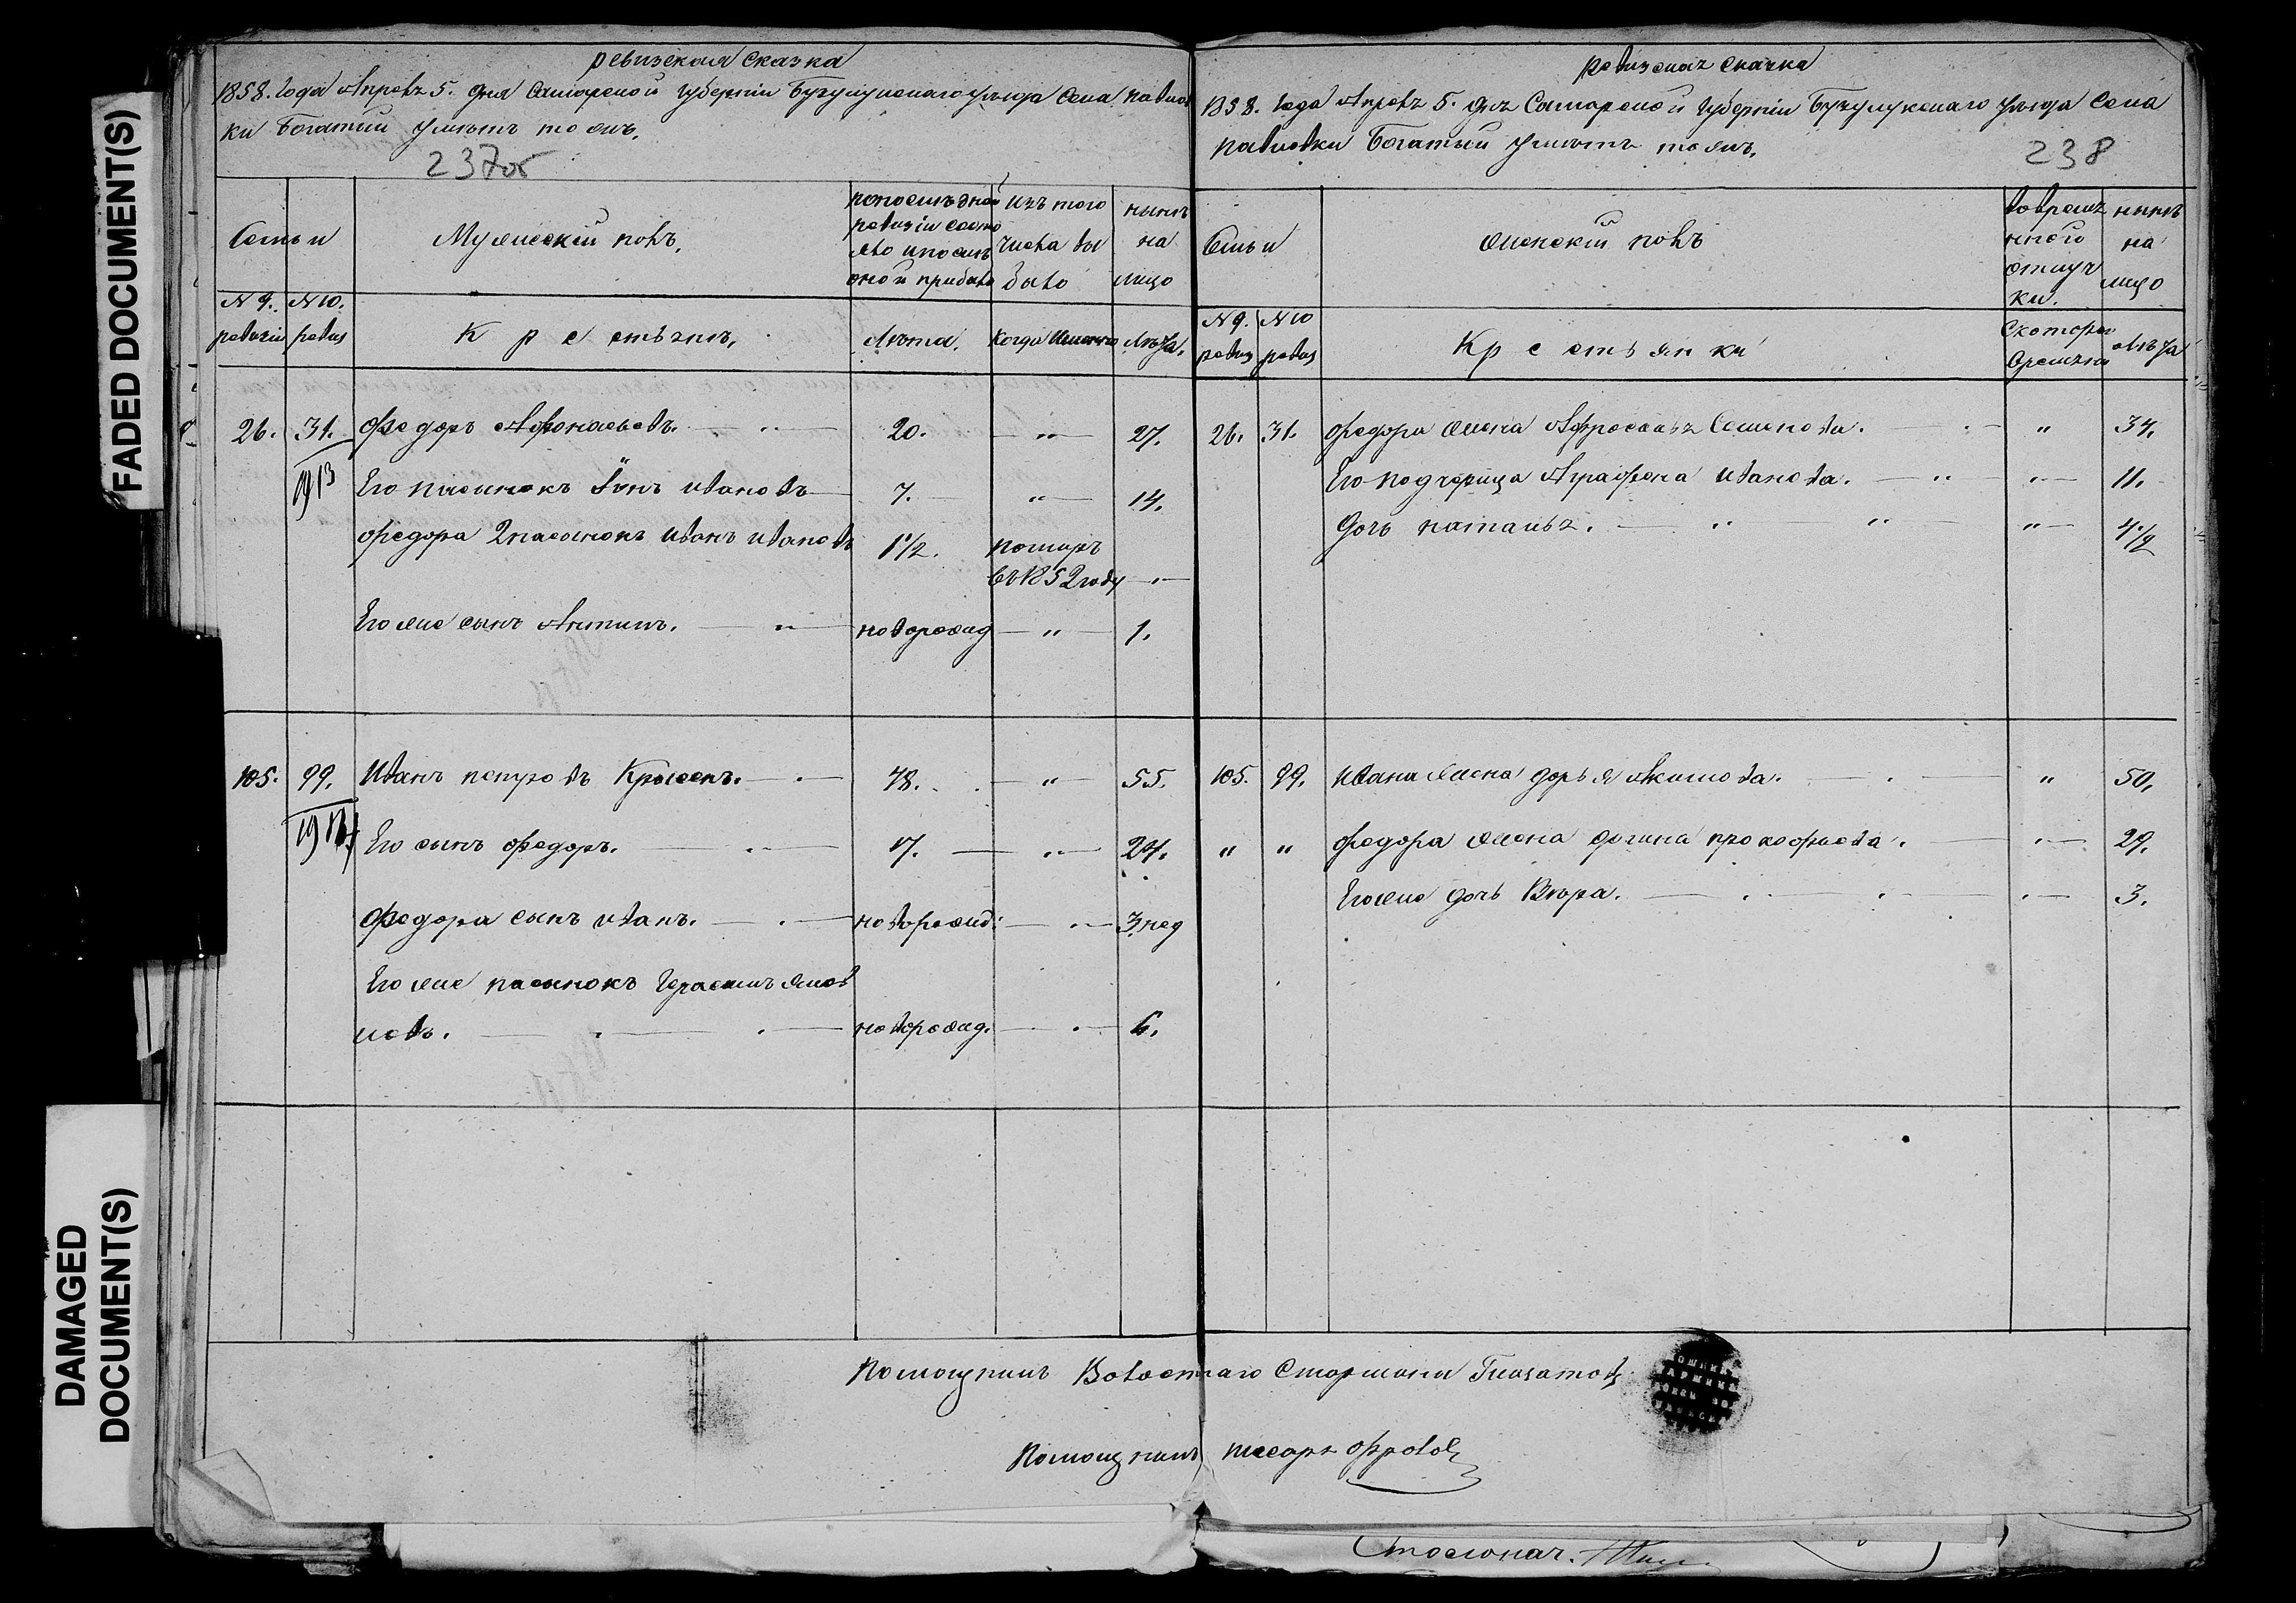 FADED DOCUMENT(S)
DAMAGED
DOCUMENT(S)
ревизская сказка
1858. года Апреля 5. дня Самарской губернии Бузулукскаго уезда Села Павлов
ки Богатый Умётъ тожъ.
237об
Семьи
Мужескій полъ.
по последней
ревизіи состо
яло и после
оной прибыло
изъ того
числа вы
было
нынѣ
на
лицо
№ 9. № 10.
ревизіи ревиз
Крестьянъ.
Лѣта.
Когда именно
Лѣта.
26. 31. Федоръ Афонасьевъ. 20. " 27.
1913
Его пасынокъ Іонъ Ивановъ 7. " 14.
Федора 2 пасынокъ Иванъ Ивановъ 1 1/2. померъ
въ 1852 году "
Его же сынъ Антипъ. " новорожд " 1.
105. 99. Иванъ Петровъ 48. " 55.
Его сынъ Федоръ. 17. " 24.
Федора сынъ Иванъ. новорожд: " 3 нед
Его же пасынокъ Герасимъ
новорожд. 6.
ревизская сказка
1858. года Апреля 5. дня Самарской губерніи Бузулукскаго уезда Села
Павловки Богатый Умётъ тожъ.
238
Семьи
Женскій полъ
во времен
ной
отлуч
ки.
нынѣ
на
лицо
№ 9. № 10
ревиз ревиз
Крестьянки
Скотораго
времени
лѣта
26. 31. Федора жена Афросинья Семенова. " 34.
Его подчерица Аграфена Иванова. " 11.
Дочь Наталья. " 4 1/2
105. 99. Ивана жена Дарья Акимова. " 50.
" " Федора жена Прокофьева. " 29.
Его же дочь Вѣра. " 3.
Помощникъ Волостнаго Старшины
Помощникъ писаря Фролов
Столонач.